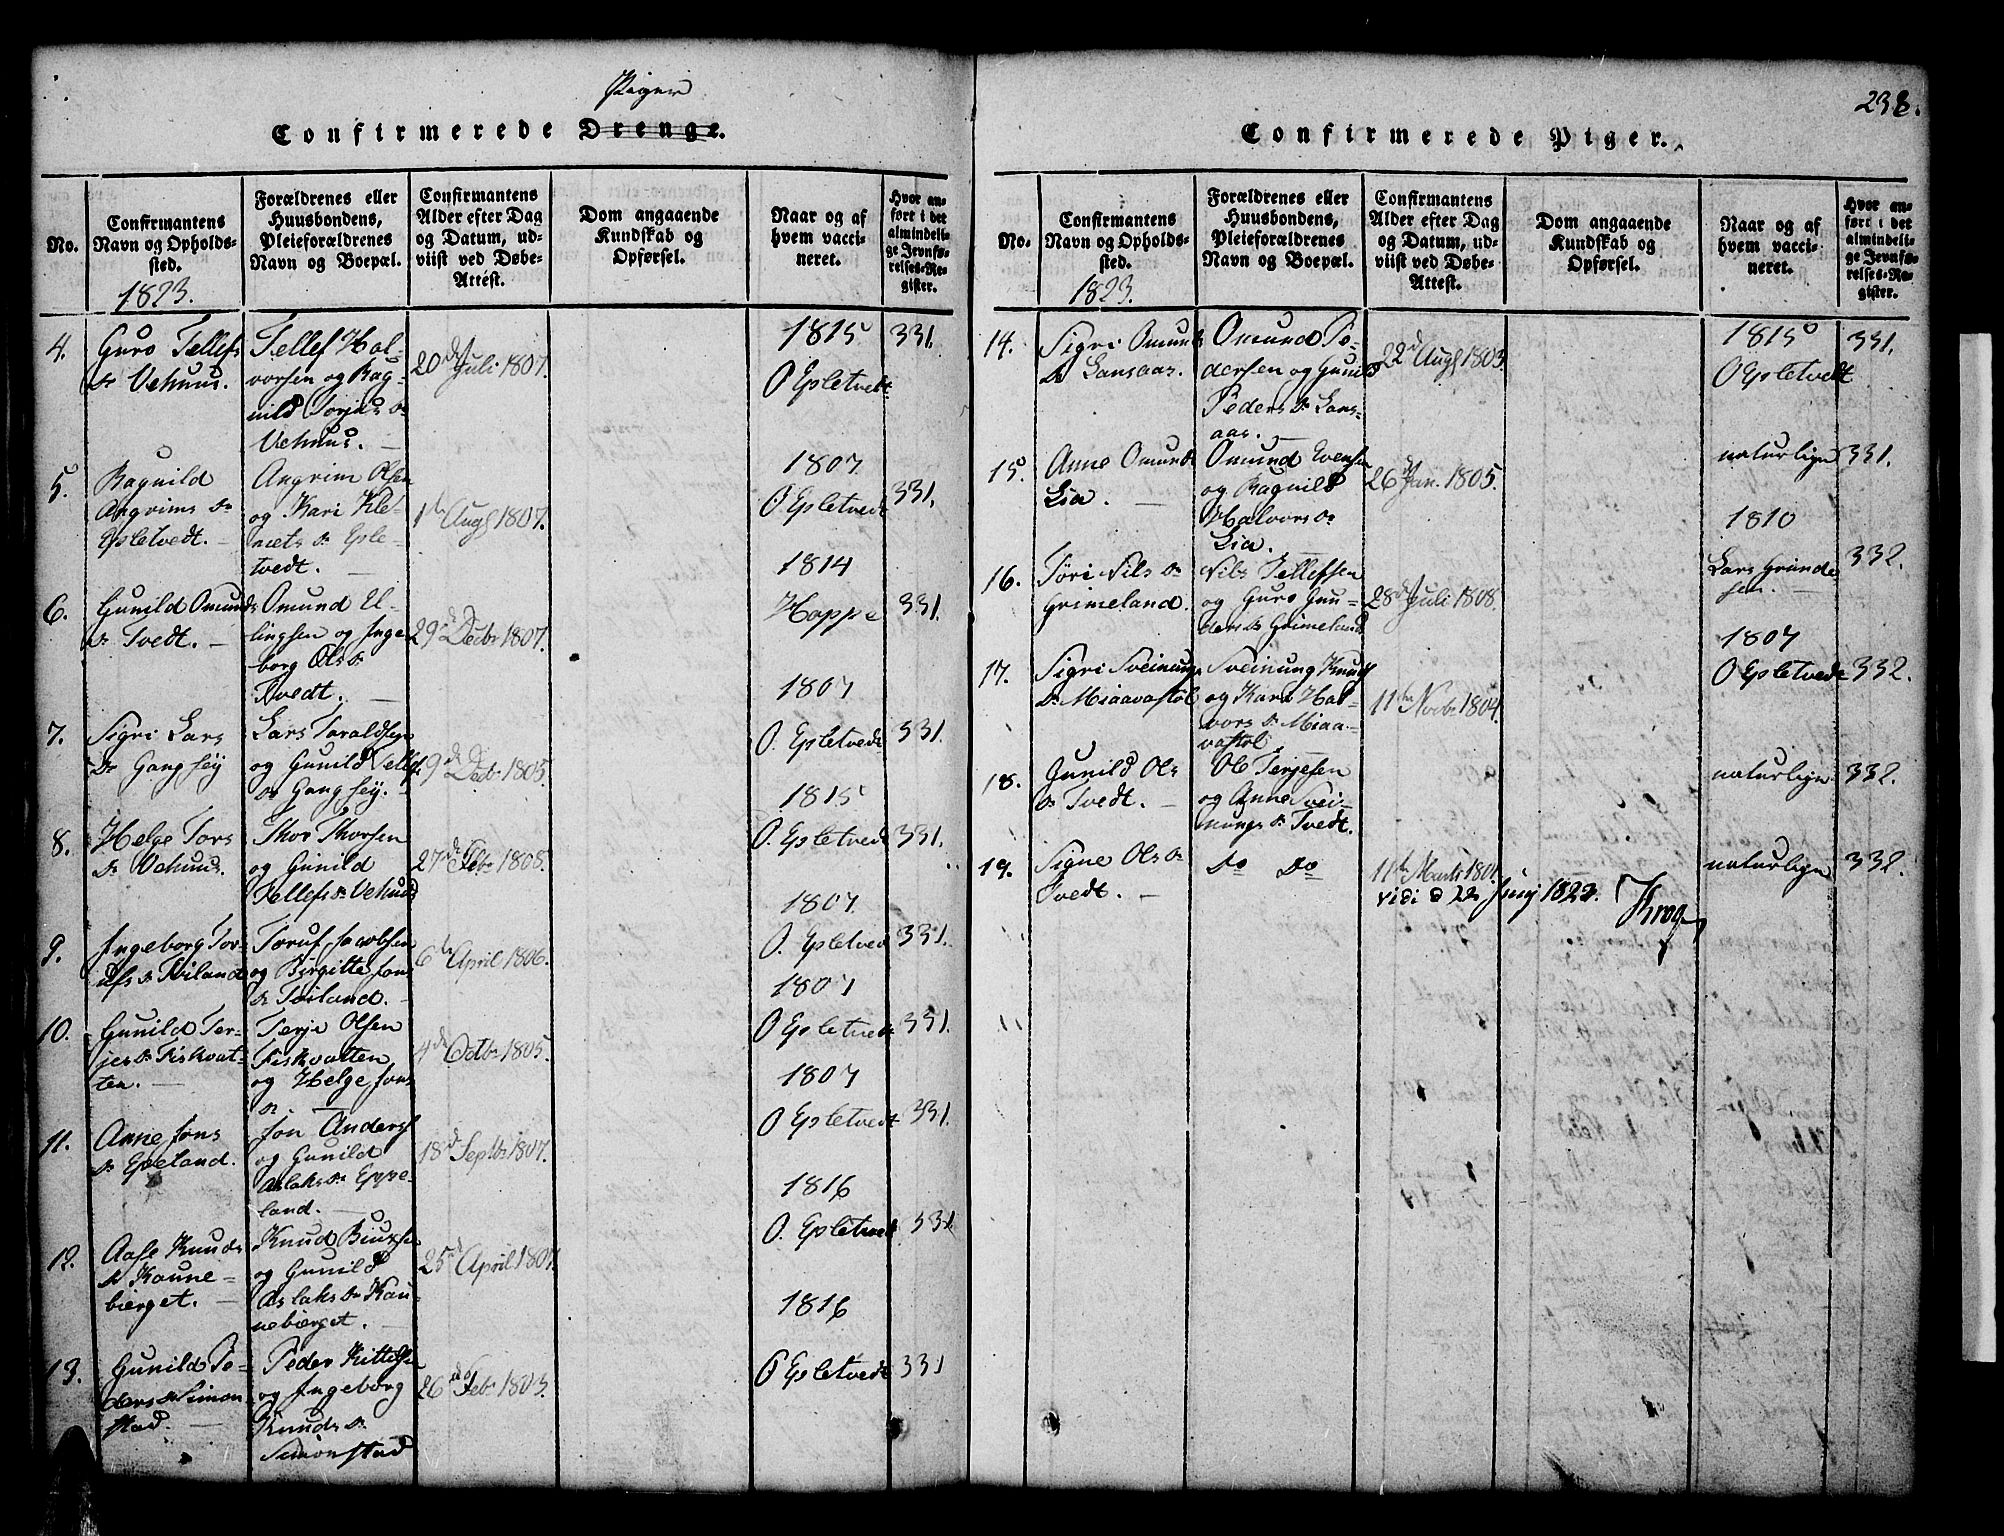 Piger
Confirmerede Drenge.
No.
Confirmantens Navn og Opholds-sted.
1823.
Forældrenes eller Huusbondens, Pleieforældrenes Navn og Boepæl.
Confirmantens Alder efter Dag og Datum, ud-viist ved Døbe-Attest.
Dom angaaende Kundskab og Opførsel.
Naar og af hvem vacci-neret.
Hvor an-ført i det almindeli-ge Jevnfø-relses-Re-gister.
4.
Guro Tellefs
Dr Vehuus.
Tellef Hal-
vorsen og Rag-
nild Torjus Dr
Vehuus.
20de Juli 1807.
1815
O Epletvedt
331.
5.
Ragnild
Angrims Dr
Epletvedt.
Angrim Olsen
og Kari Kle-
mets Dr Eple-
tvedt.
1ste Augs 1807.
1807
O Epletvedt
331.
6.
Gunild Omunds
Dr Tvedt.
Omund El-
lingsen og Inge
borg Ols Dr
Tvedt.
29de Decbr 1807.
1814
Hoppe
331.
7.
Sigri Lars
Dr Gangsey
Lars Toraldsen
og Gunild Tellefs
Dr Gangsey.
9de Decbr 1805.
1807
O. Epletvedt
331.
8.
Helge Tors
Dr Vehuus.
Thor Thorsen
og Gunild
Tellefs Dr Vehuus
27de Febr 1805.
1815
O. Epletvedt
331.
9.
Ingeborg Tor-
ufs Dr Toiland
Toruf Jacobsen
og Birgitte Jons
Dr Toiland.
6te April 1806.
1807.
O. Epletved
331.
10.
Gunild Ter-
jes Dr Fiskvat-
ten.
Terje Olsen
Fiskvatten
og Helge Jons
Dr.
4de Octbr 1805.
1807
O Epletvedt
331.
11.
Anne Jons
Dr Epeland.
Jon Anders
og Gunild
Aslaks Dr Eppe-
land.
18de Septbr 1807.
1807
O Epletvedt
331.
12.
Aase Knuds
Dr Kaune-
bierget.
Knud
og Gunild
Aslaks Dr Kau-
nebierget.
25de April 1807.
1816
O. Epletvedt
331
13.
Gunild Pe-
ders Dr Simon
stad.
Peder Kittelsen
og Ingeborg
Knuds Dr
Simonstad
26de Febr 1803.
1816
O Epletvedt
331
238.
Confirmerede Piger.
No.
Confirmantens Navn og Opholds-sted.
1823.
Forældrenes eller Huusbondens, Pleieforældrenes Navn og Boepæl.
Confirmantens Alder efter Dag og Datum, ud-viist ved Døbe-Attest.
Dom angaaende Kundskab og Opførsel.
Naar og af hvem vacci-neret.
Hvor an-ført i det almindeli-ge Jevnfø-relses-Re-gister.
14.
Sigri Omunds
Dr Lansaas.
Omund Pe-
dersen og Gunild
Peders Dr Lans-
aas.
22de Augs 1803.
1815
O Epletvedt
331.
15.
Anne Omunds
Lia.
Omund Evensen
og Ragnild
Halvors Dr
Lia.
26de Jan. 1805.
naturlign
331.
16.
Töri Nils Dr
Grimeland.
Nils Tellefsen
og Guro Gun-
ders Dr Grimeland
28de Juli 1808.
1810
Lars Grunde
sen.
332.
17.
Sigri Sveinungs
Dr Miaavastöl
Sveinung Knuds
og Kari Hal
vors Dr Miaa-
vastöl
11te Novbr 1804.
1807
O Epletvedt
332.
18.
Gunild Ols
Dr Tvedt.
Ole Terjesen
og Anne Svei-
nungs Dr Tvedt.
naturlign
332.
19.
Signe Ols Dr
Tvedt.
Do Do
11te Marts 1801.
naturlign
332.
vidi d 22 Junj 1823. Krog